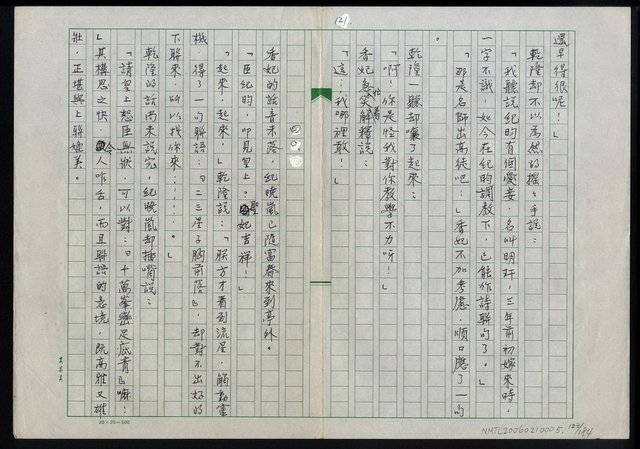 121.
還早得很呢！」
乾隆却不以為然的搖搖手說：
「我聽說紀昀有個愛妾，名叫明玕，三年前初嫁來時，
一字不識，如今在紀昀調教下，已能作詩聯句了。」
「那是名師出高徒吧！」香妃不加考慮，順口應了一句
。
乾隆一聽却嚷了起來：
「啊！你是怪我對你教學不力呀！」
香妃忙着急笑解釋說：
「這！我哪裡敢！」
四〇、
香妃的話音未落，紀曉嵐已隨富春來到亭外。
「臣紀昀，叩見皇上。聖妃吉祥！」
「起來，起來，」乾隆說：「朕方才看到流星，觸動靈
機，得了一句聯語：『二三星子胸前落』，却對不出好的
下聯來，所以找你來……。」
乾隆的話尚未說完，紀曉嵐却插嘴說：
「請皇上恕臣無狀，可以對：『十萬峯巒足底青』嘛！
」其構思之快，令人咋舌，而且聯語的意境，既高雅又雄
壯，正堪與上聯媲美。
20×25=500
NMTL20060210005. 123/184